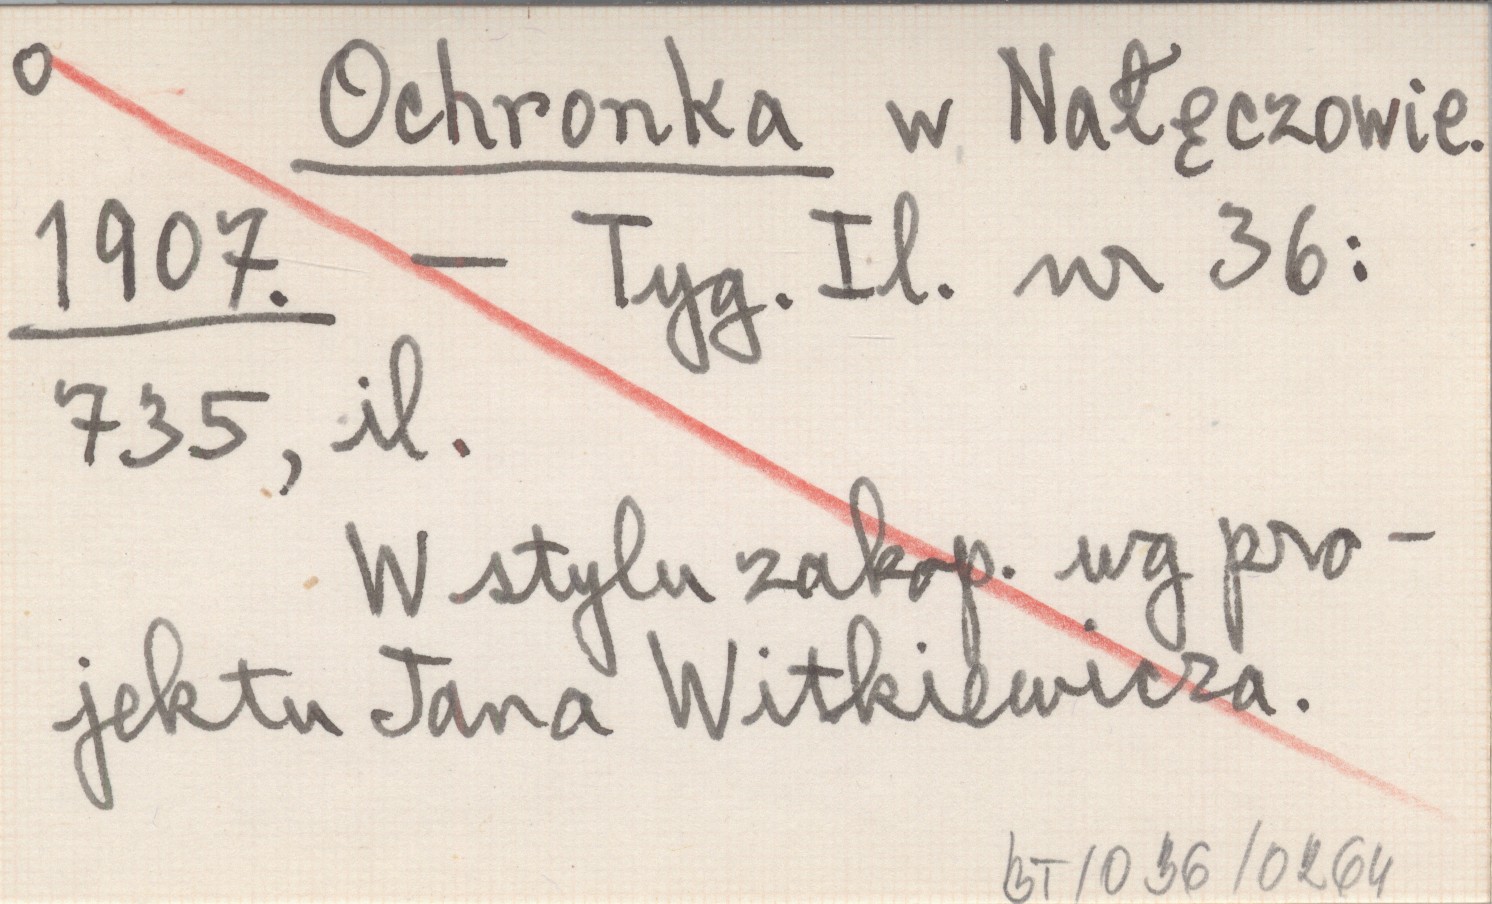 o Ochronka w Nałęczowie.
1907. — Tyg. Il. nr 36:
735, il.
W stylu zakop. wg pro-
jektu Jana Witkiewicza.
BT/036/0264